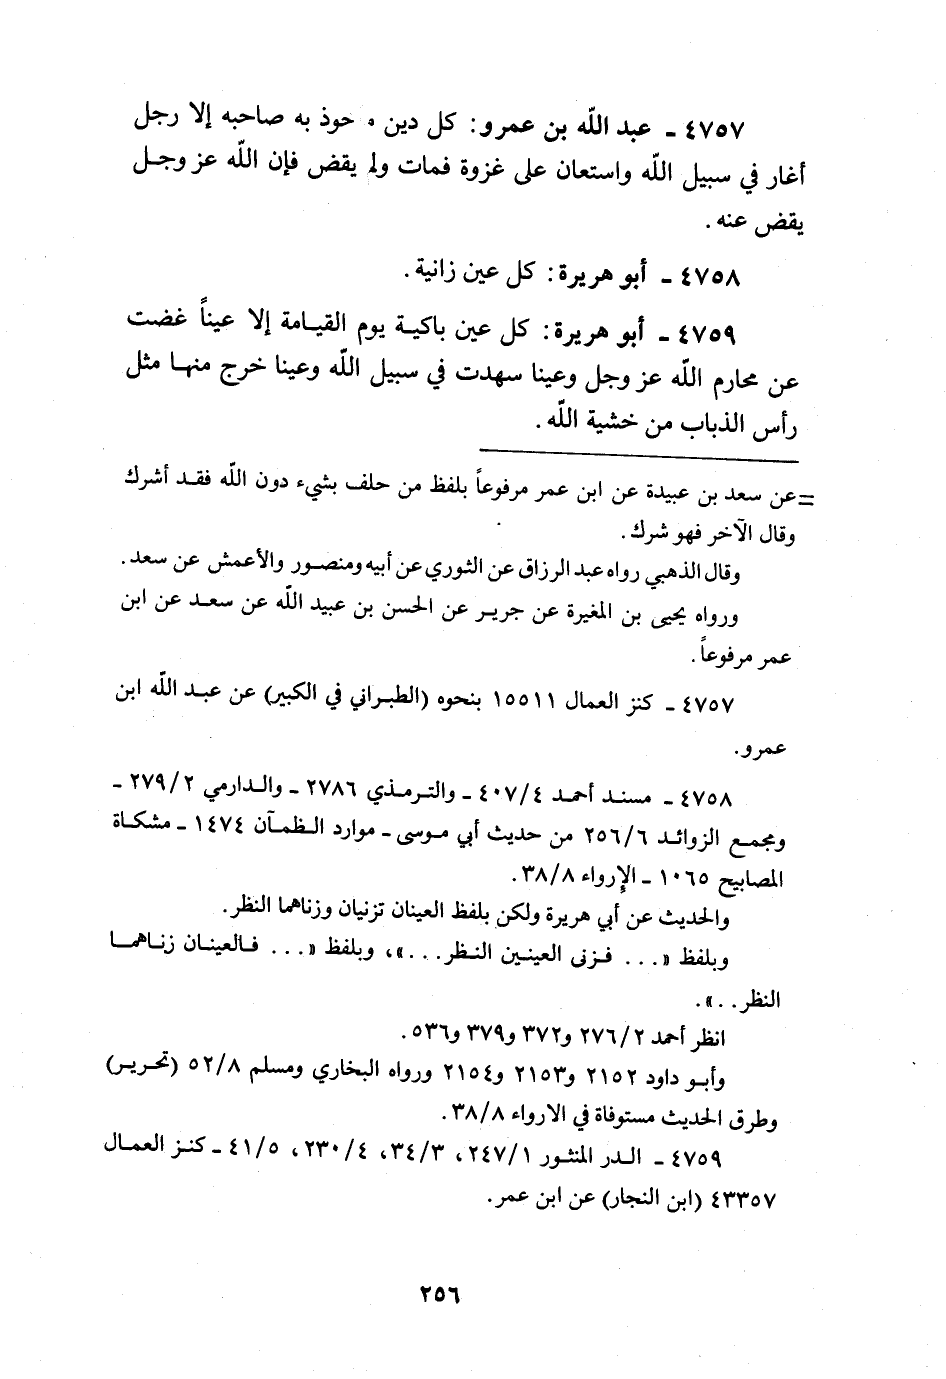 ٤٧٥٧ ـ عبد الله بن عمرو: كل دين حوذ به صاحبه إلا رجل
أغار في سبيل الله واستعان على غزوة فمات ولم يقض فإن الله عز وجل
يقض عنه.
٤٧٥٨ ـ أبو هريرة: كل عين زانية.
٤٧٥٩ ـ أبو هريرة: كل عين باكية يوم القيامة إلا عيناً غضت
عن محارم الله عز وجل وعينا سهدت في سبيل الله وعينا خرج منها مثل
رأس الذباب من خشية الله.
= عن سعد بن عبيدة عن ابن عمر مرفوعاً بلفظ من حلف بشيء دون الله فقد أشرك
وقال الآخر فهو شرك.
وقال الذهبي رواه عبد الرزاق عن الثوري عن أبيه ومنصور والأعمش عن سعد.
ورواه يحيى بن المغيرة عن جرير عن الحسن بن عبيد الله عن سعد عن ابن
عمر مرفوعاً.
٤٧٥٧ ـ كنز العمال ١٥٥١١ بنحوه (الطبراني في الكبير) عن عبد الله ابن
عمرو.
٤٧٥٨ ـ مسند أحمد ٤/‏٤٠٧ ـ والترمذي ٢٧٨٦ ـ والدارمي ٢/‏٢٧٩ ـ
ومجمع الزوائد ٦/‏٢٥٦ من حديث أبي موسى ـ موارد الظمآن ١٤٧٤ ـ مشكاة
المصابيح ١٠٦٥ ـ الإرواء ٨/‏٣٨.
والحديث عن أبي هريرة ولكن بلفظ العينان تزنيان وزناهما النظر.
وبلفظ «... فزنى العينين النظر...»، وبلفظ «... فالعينان زناهما
النظر..».
انظر أحمد ٢/‏٢٧٦ و٣٧٢ و٣٧٩ و٥٣٦.
وأبو داود ٢١٥٢ و٢١٥٣ و٢١٥٤ ورواه البخاري ومسلم ٨/‏٥٢ (تحرير)
وطرق الحديث مستوفاة في الارواء ٨/‏٣٨.
٤٧٥٩ ـ الدر المنثور ١/‏٢٤٧، ٣/‏٣٤، ٤/‏٢٣٠، ٥/‏٤١ ـ كنز العمال
٤٣٣٥٧ (ابن النجار) عن ابن عمر.
٢٥٦